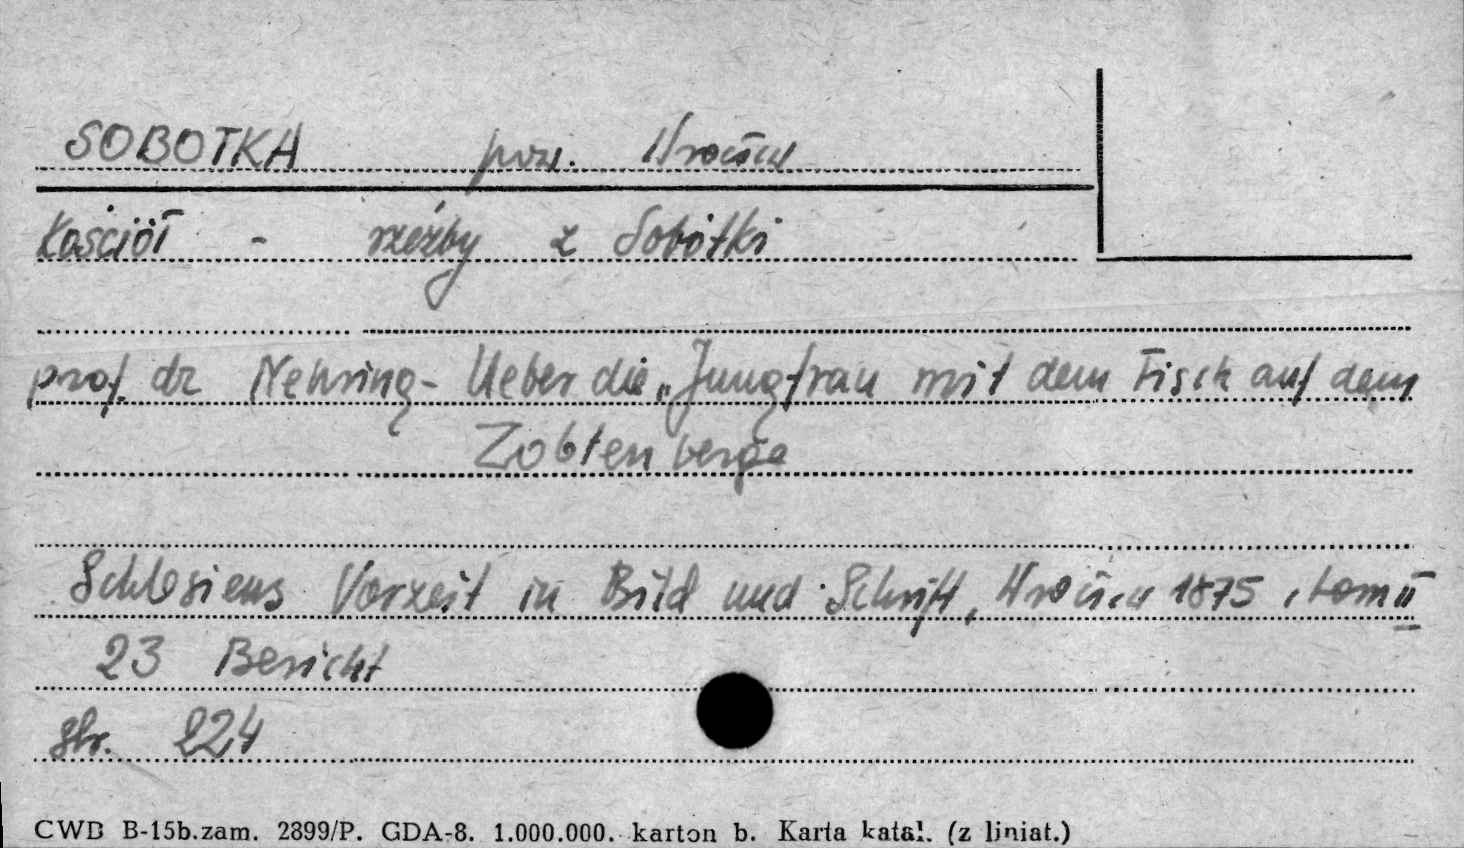 SOBOTKA pow. Wrocław
Kościół - rzeźby z Sobótki
prof. dr Nehring - Ueber die „Jungfrau mit dem Fisch auf dem
Zobtenberge
Schlesiens Vorzeit in Bild und Schrift, Wrocław 1875, tom II
23 Bericht
str. 224
CWD B-15b.zam. 2899/P. GDA-8. 1.000.000. karton b. Karta katal. (z liniat.)